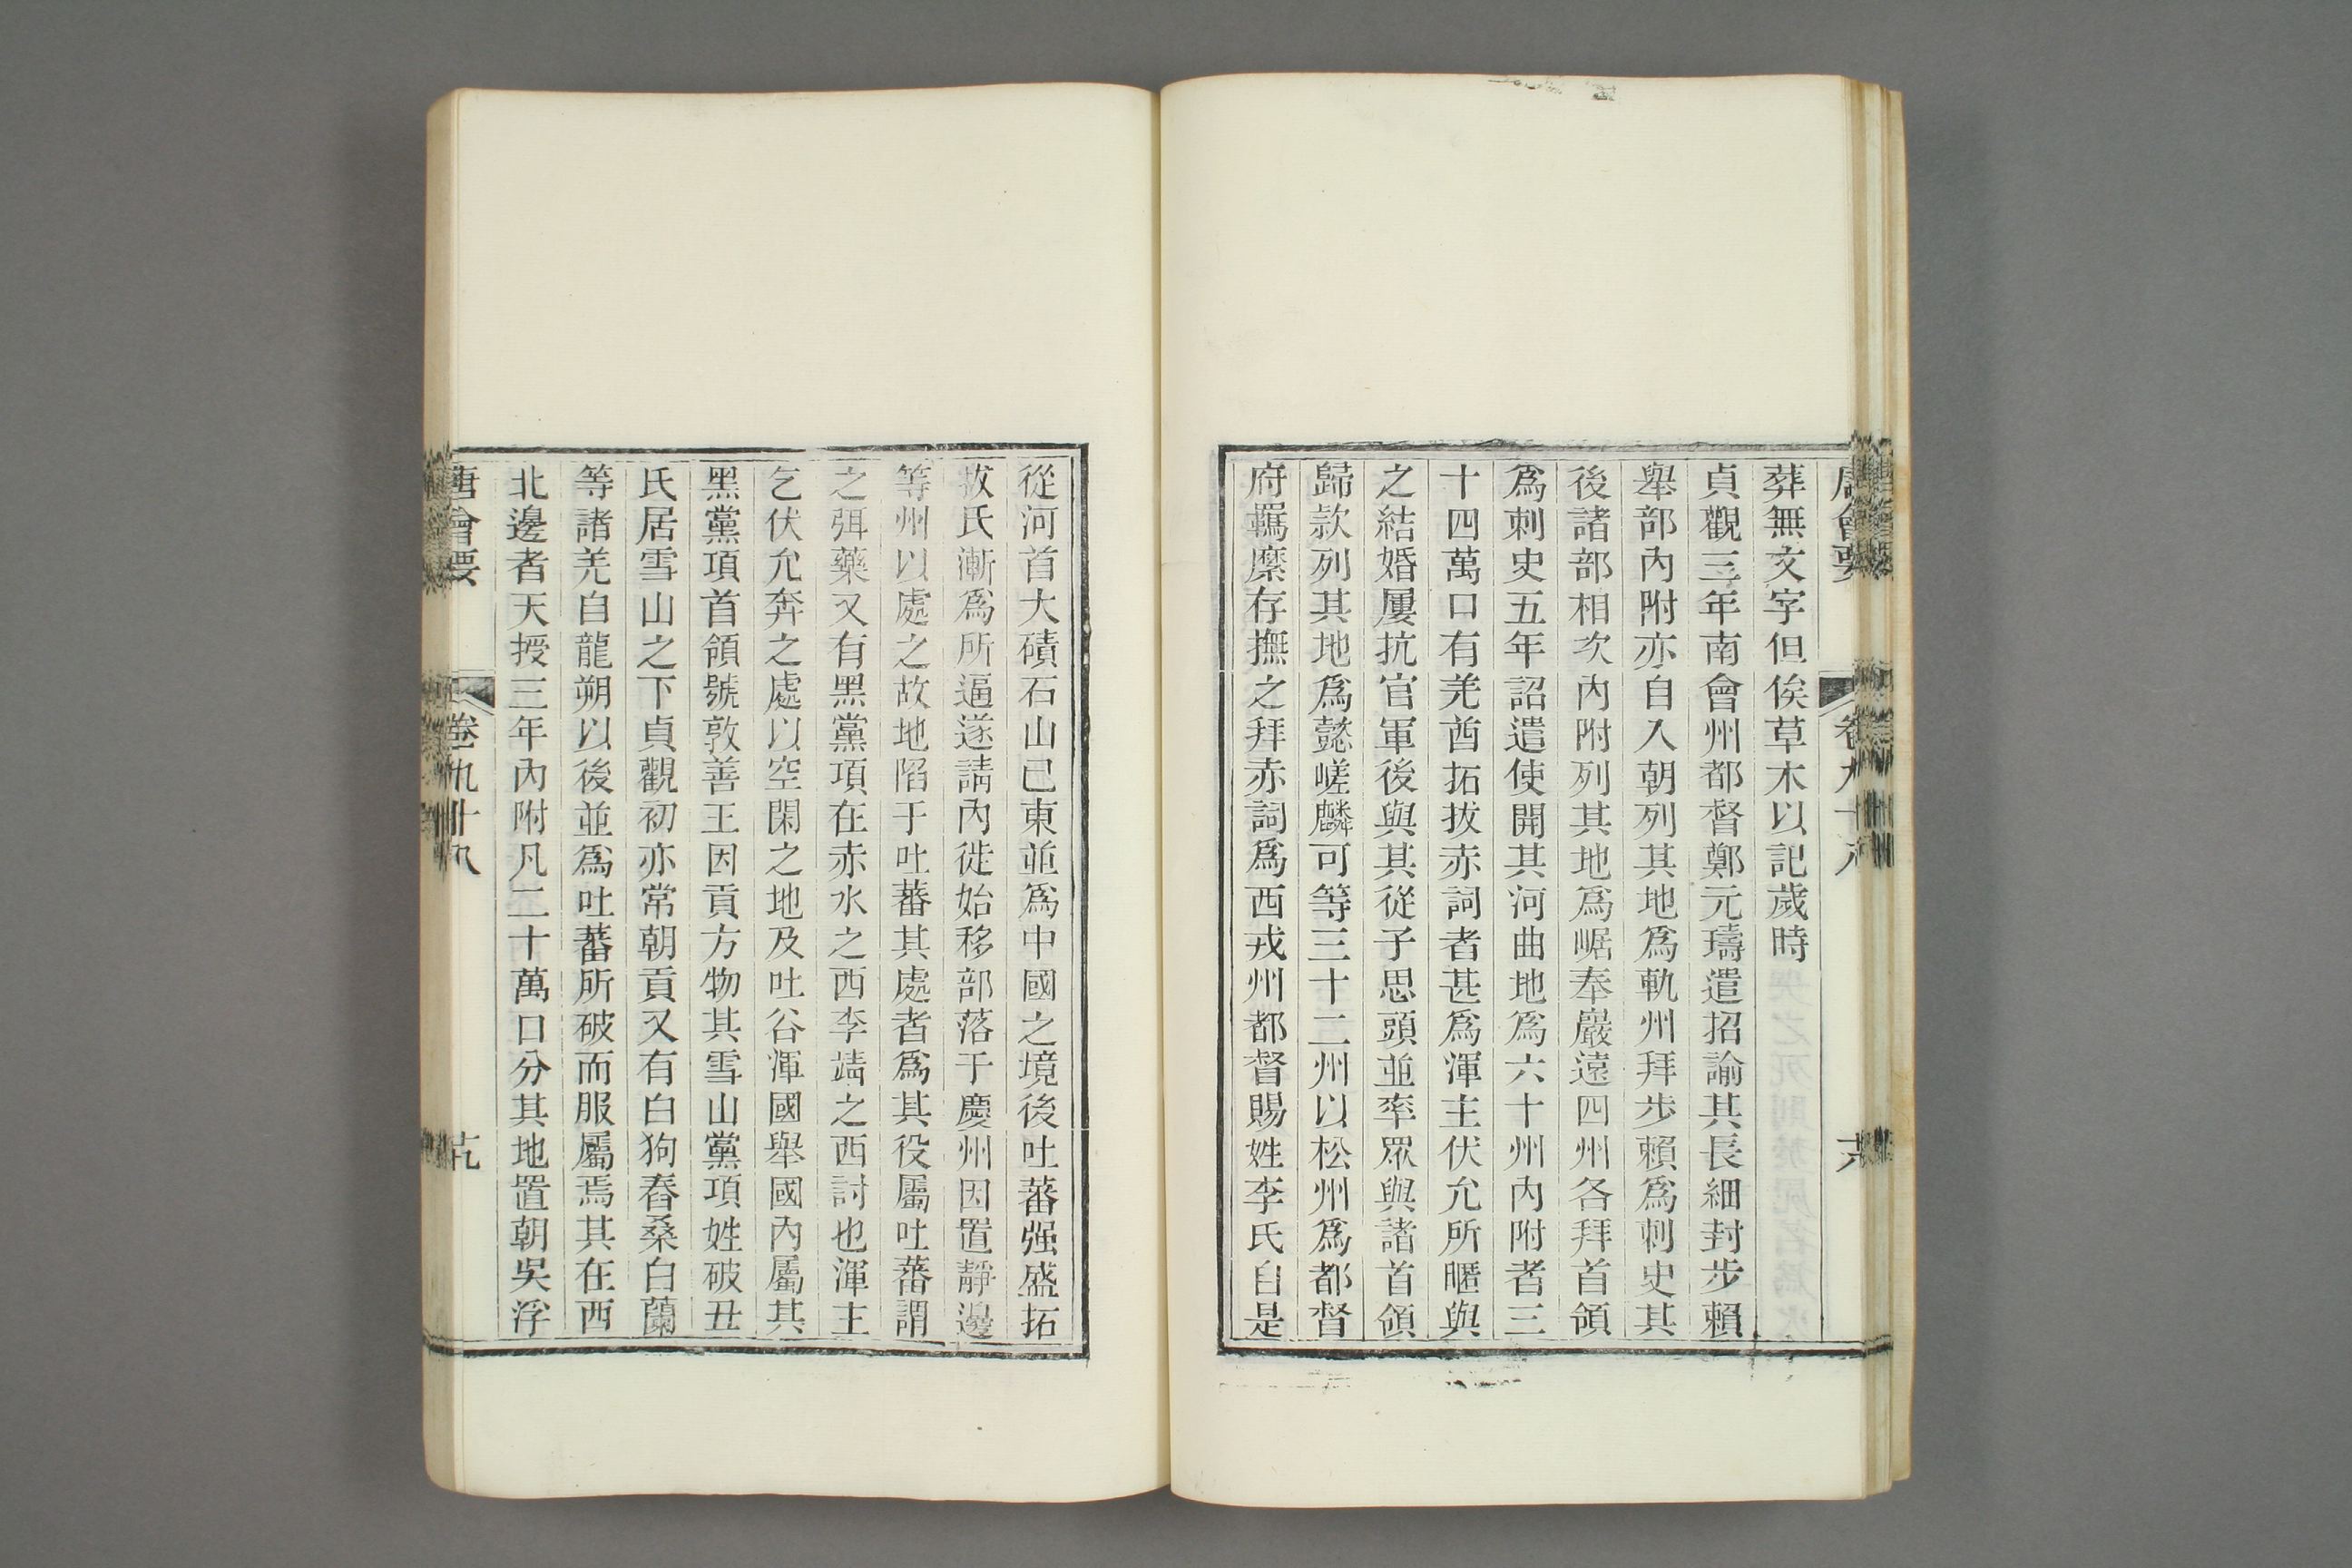 唐會要 卷九十八 十六
葬無文字但俟草木以記歲時
貞觀三年南會州都督鄭元璹遣招諭其長細封步賴
舉部內附亦自入朝列其地爲軌州拜步賴爲刺史其
後諸部相次內附列其地爲崌奉巖遠四州各拜首領
爲刺史五年詔遣使開其河曲地爲六十州內附者三
十四萬口有羌酋拓拔赤詞者甚爲渾主伏允所暱與
之結婚屢抗官軍後與其從子思頭並率眾與諸首領
歸款列其地爲懿嵯麟可等三十二州以松州爲都督
府羈縻存撫之拜赤詞爲西戎州都督賜姓李氏自是
從河首大磧石山已東並爲中國之境後吐蕃强盛拓
拔氏漸爲所逼遂請內徙始移部落于慶州因置靜邊
等州以處之故地陷于吐蕃其處者爲其役屬吐蕃謂
之弭藥又有黑黨項在赤水之西李靖之西討也渾主
乞伏允奔之處以空閑之地及吐谷渾國舉國內屬其
黑黨項首領號敦善王因貢方物其雪山黨項姓破丑
氏居雪山之下貞觀初亦常朝貢又有白狗舂桑白蘭
等諸羌自龍朔以後並爲吐蕃所破而服屬焉其在西
北邊者天授三年內附凡二十萬口分其地置朝吳浮
唐會要 卷九十八 十七